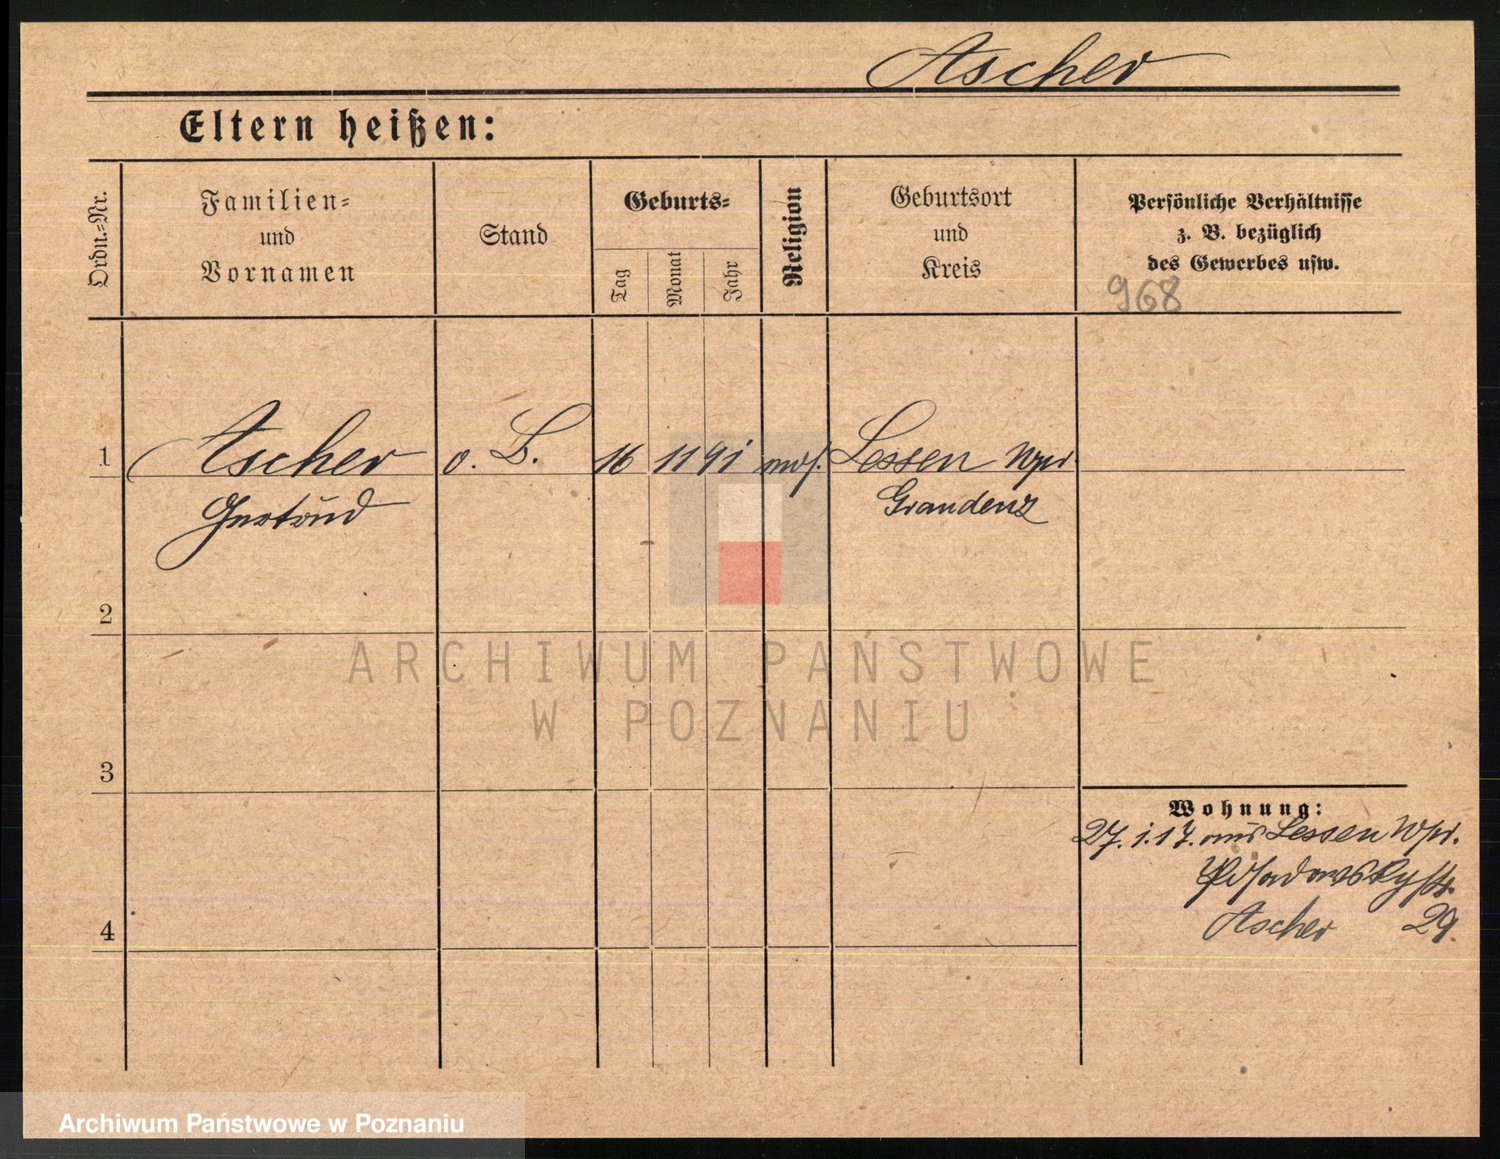 Ascher
Eltern heißen:
Ordn.-Nr.
Familien-
und
Vornamen
Stand
Geburts-
Tag
Monat
Jahr
Religion
Geburtsort
und
Kreis
Persönliche Verhältnisse
z. B. bezüglich
des Gewerbes usw.
968
1
Ascher
Gertrud
o. B.
16
11
91
mos.
Lessen Wpr
Graudenz
2
3
4
Wohnung:
27.1.17. aus Lessen Wpr.
Posadowskystr.
Ascher 29.
ARCHIWUM PAŃSTWOWE
W POZNANIU
Archiwum Państwowe w Poznaniu